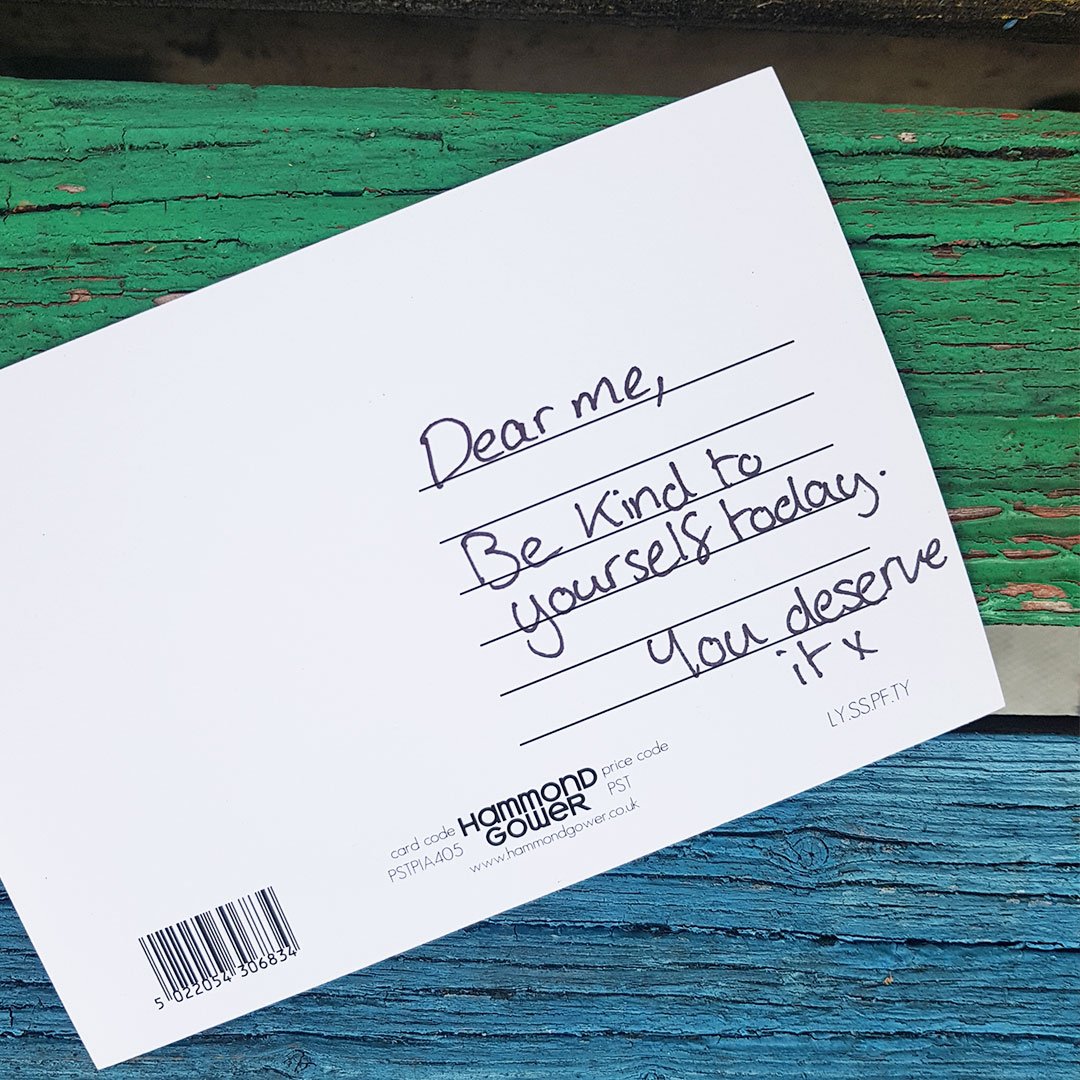 Dear me,
Be kind to
yourself today.
You deserve
it x
LY.SS.PF.TY
card code
PSTPIA405
HAMMOND
GOWER
price code
PST
www.hammondgower.co.uk
5 022054 306834